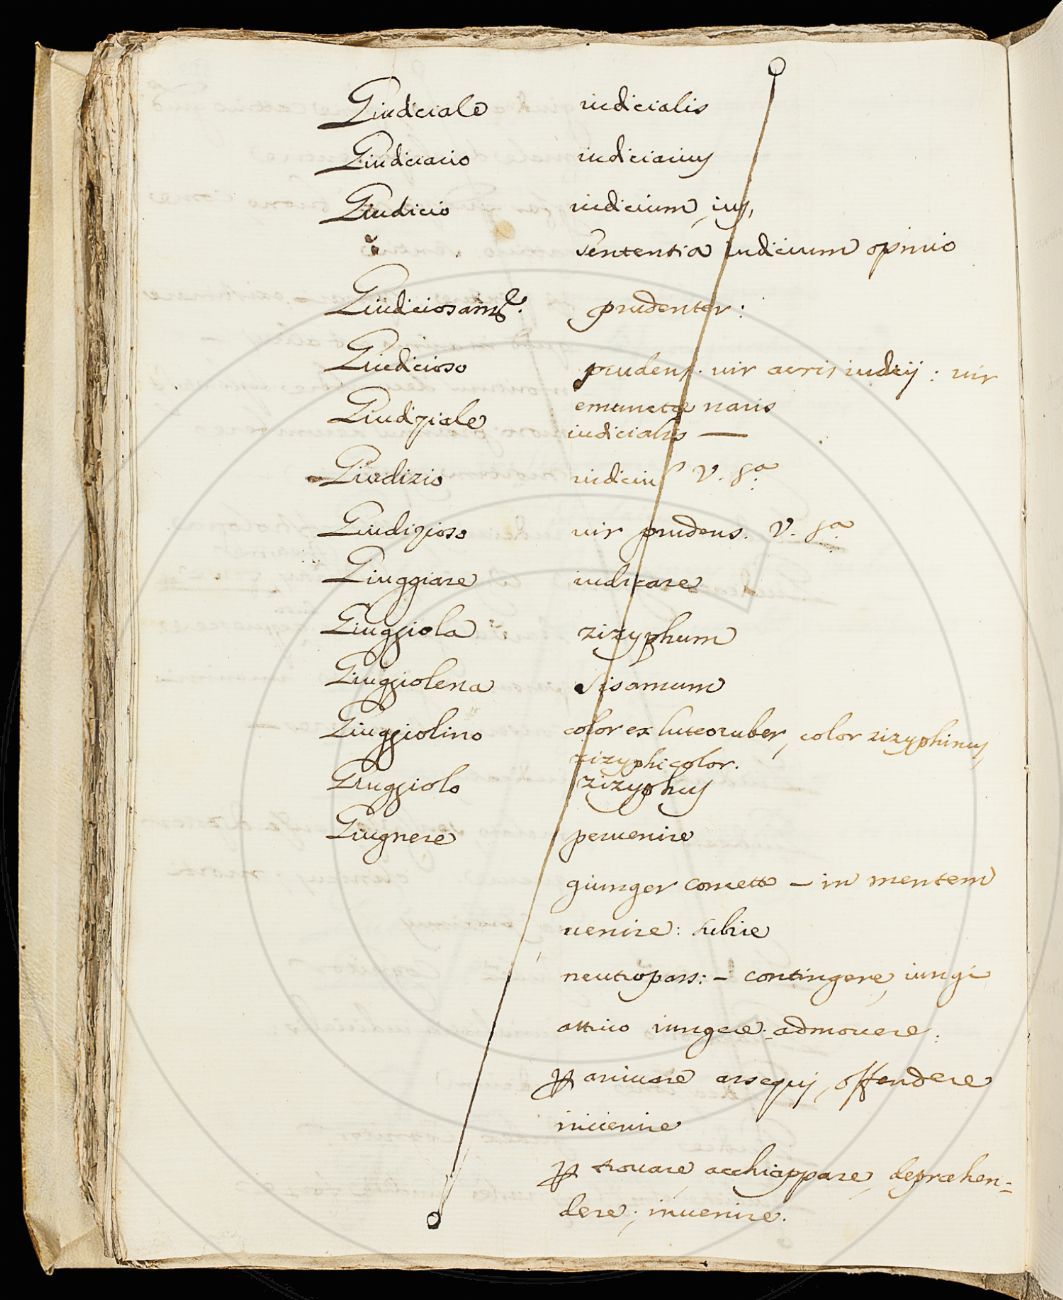 Giudiciale iudicialis
Giudiciario iudiciarius
Giudicio iudicium, ius,
sententia iudicium opinio
Giudiciosam.e prudenter:
Giudicioso prudens. vir acris iudicij: vir
emunctæ naris
Giudiziale iudicialis —
Giudizio iudiciu V. s.a
Giudizioso vir prudens. V. s.a
Giuggiare iudicare
Giuggiola zizyphum
Giuggiolena Sisamum
Giuggiolino color ex luteo ruber, color zizyphinus,
zizyphicolor.
Giuggiolo zizyphus
Giugnere peruenire
giunger — in mentem
uenire: subire
neutropass: — contingere, iungi
attiuo iungere: admouere:
ꝑ ariuare assequi, offendere
inuenire
ꝑ trouare, acchiappare, depræhen=
dere, inuenire.